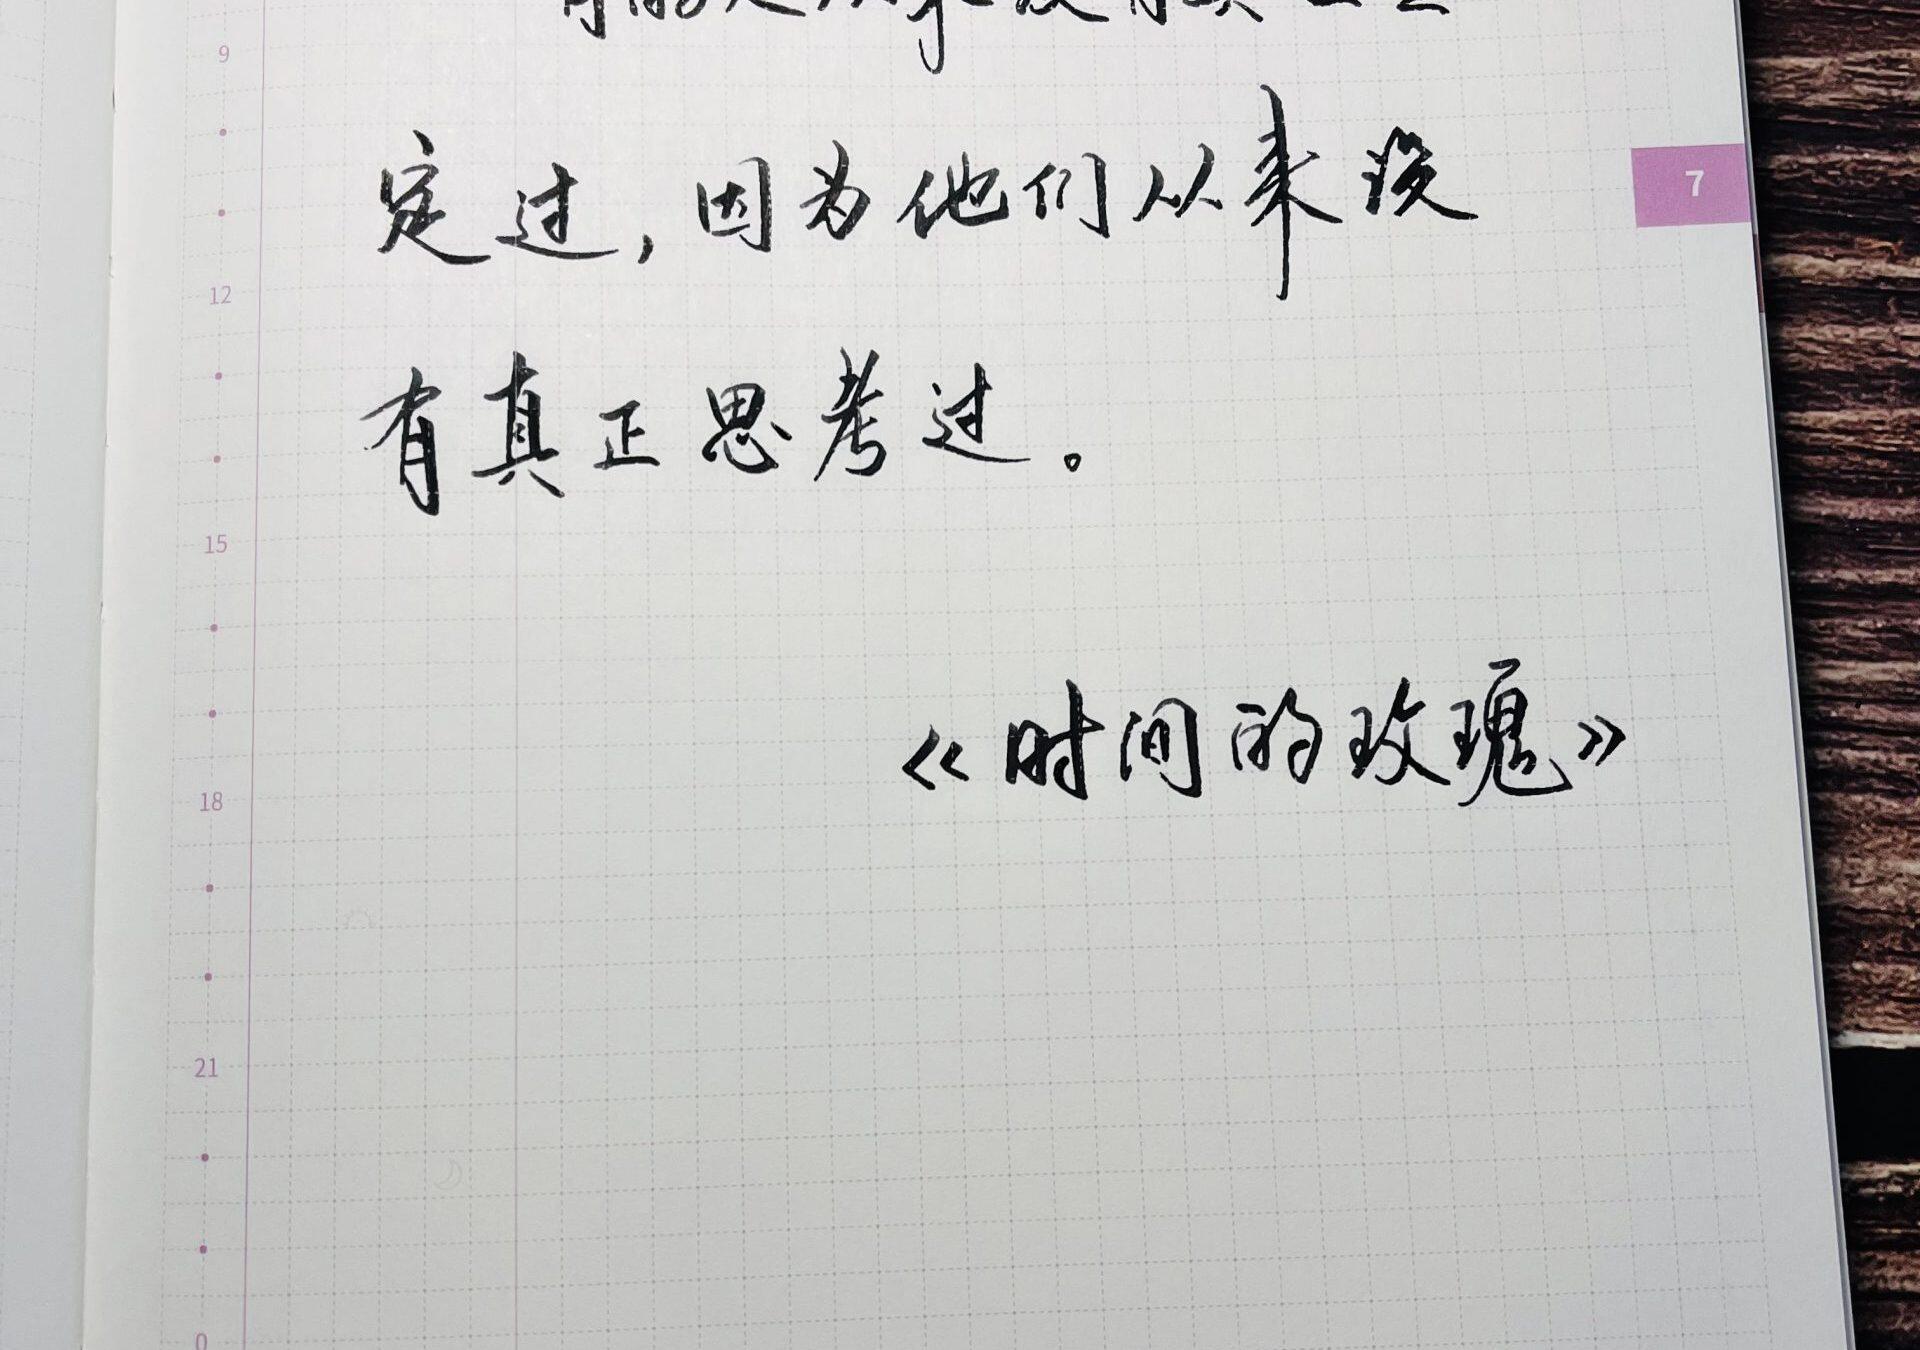 9
定过，因为他们从来没
7
12
有真正思考过。
15
《时间的玫瑰》
18
21
0